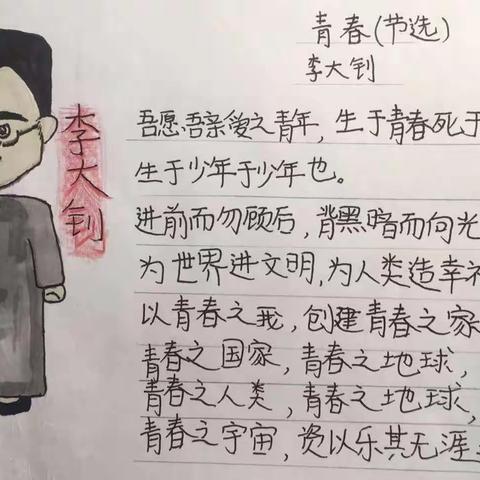 青春(节选)
李大钊
李大钊
吾愿吾亲爱之青年,生于青春死于
生于少年于少年也。
进前而勿顾后,背黑暗而向光
为世界进文明,为人类造幸
以青春之我,创建青春之家
青春之国家,青春之地球,
青春之人类,青春之地球,
青春之宇宙,资以乐其无涯